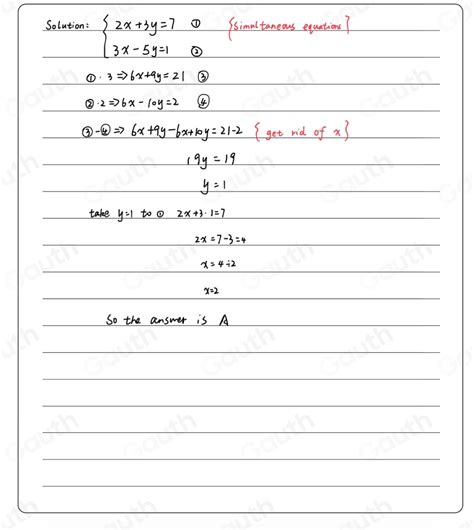 Solution: { 2x+3y=7 ① {Simultaneous equations}
3x-5y=1 ②
①·3⇒6x+9y=21 ③
②·2⇒6x-10y=2 ④
③-④⇒ 6x+9y-6x+10y=21-2 {get rid of x}
19y=19
y=1
take y=1 to ① 2x+3·1=7
2x=7-3=4
x=4÷2
x=2
So the answer is A
Gauth